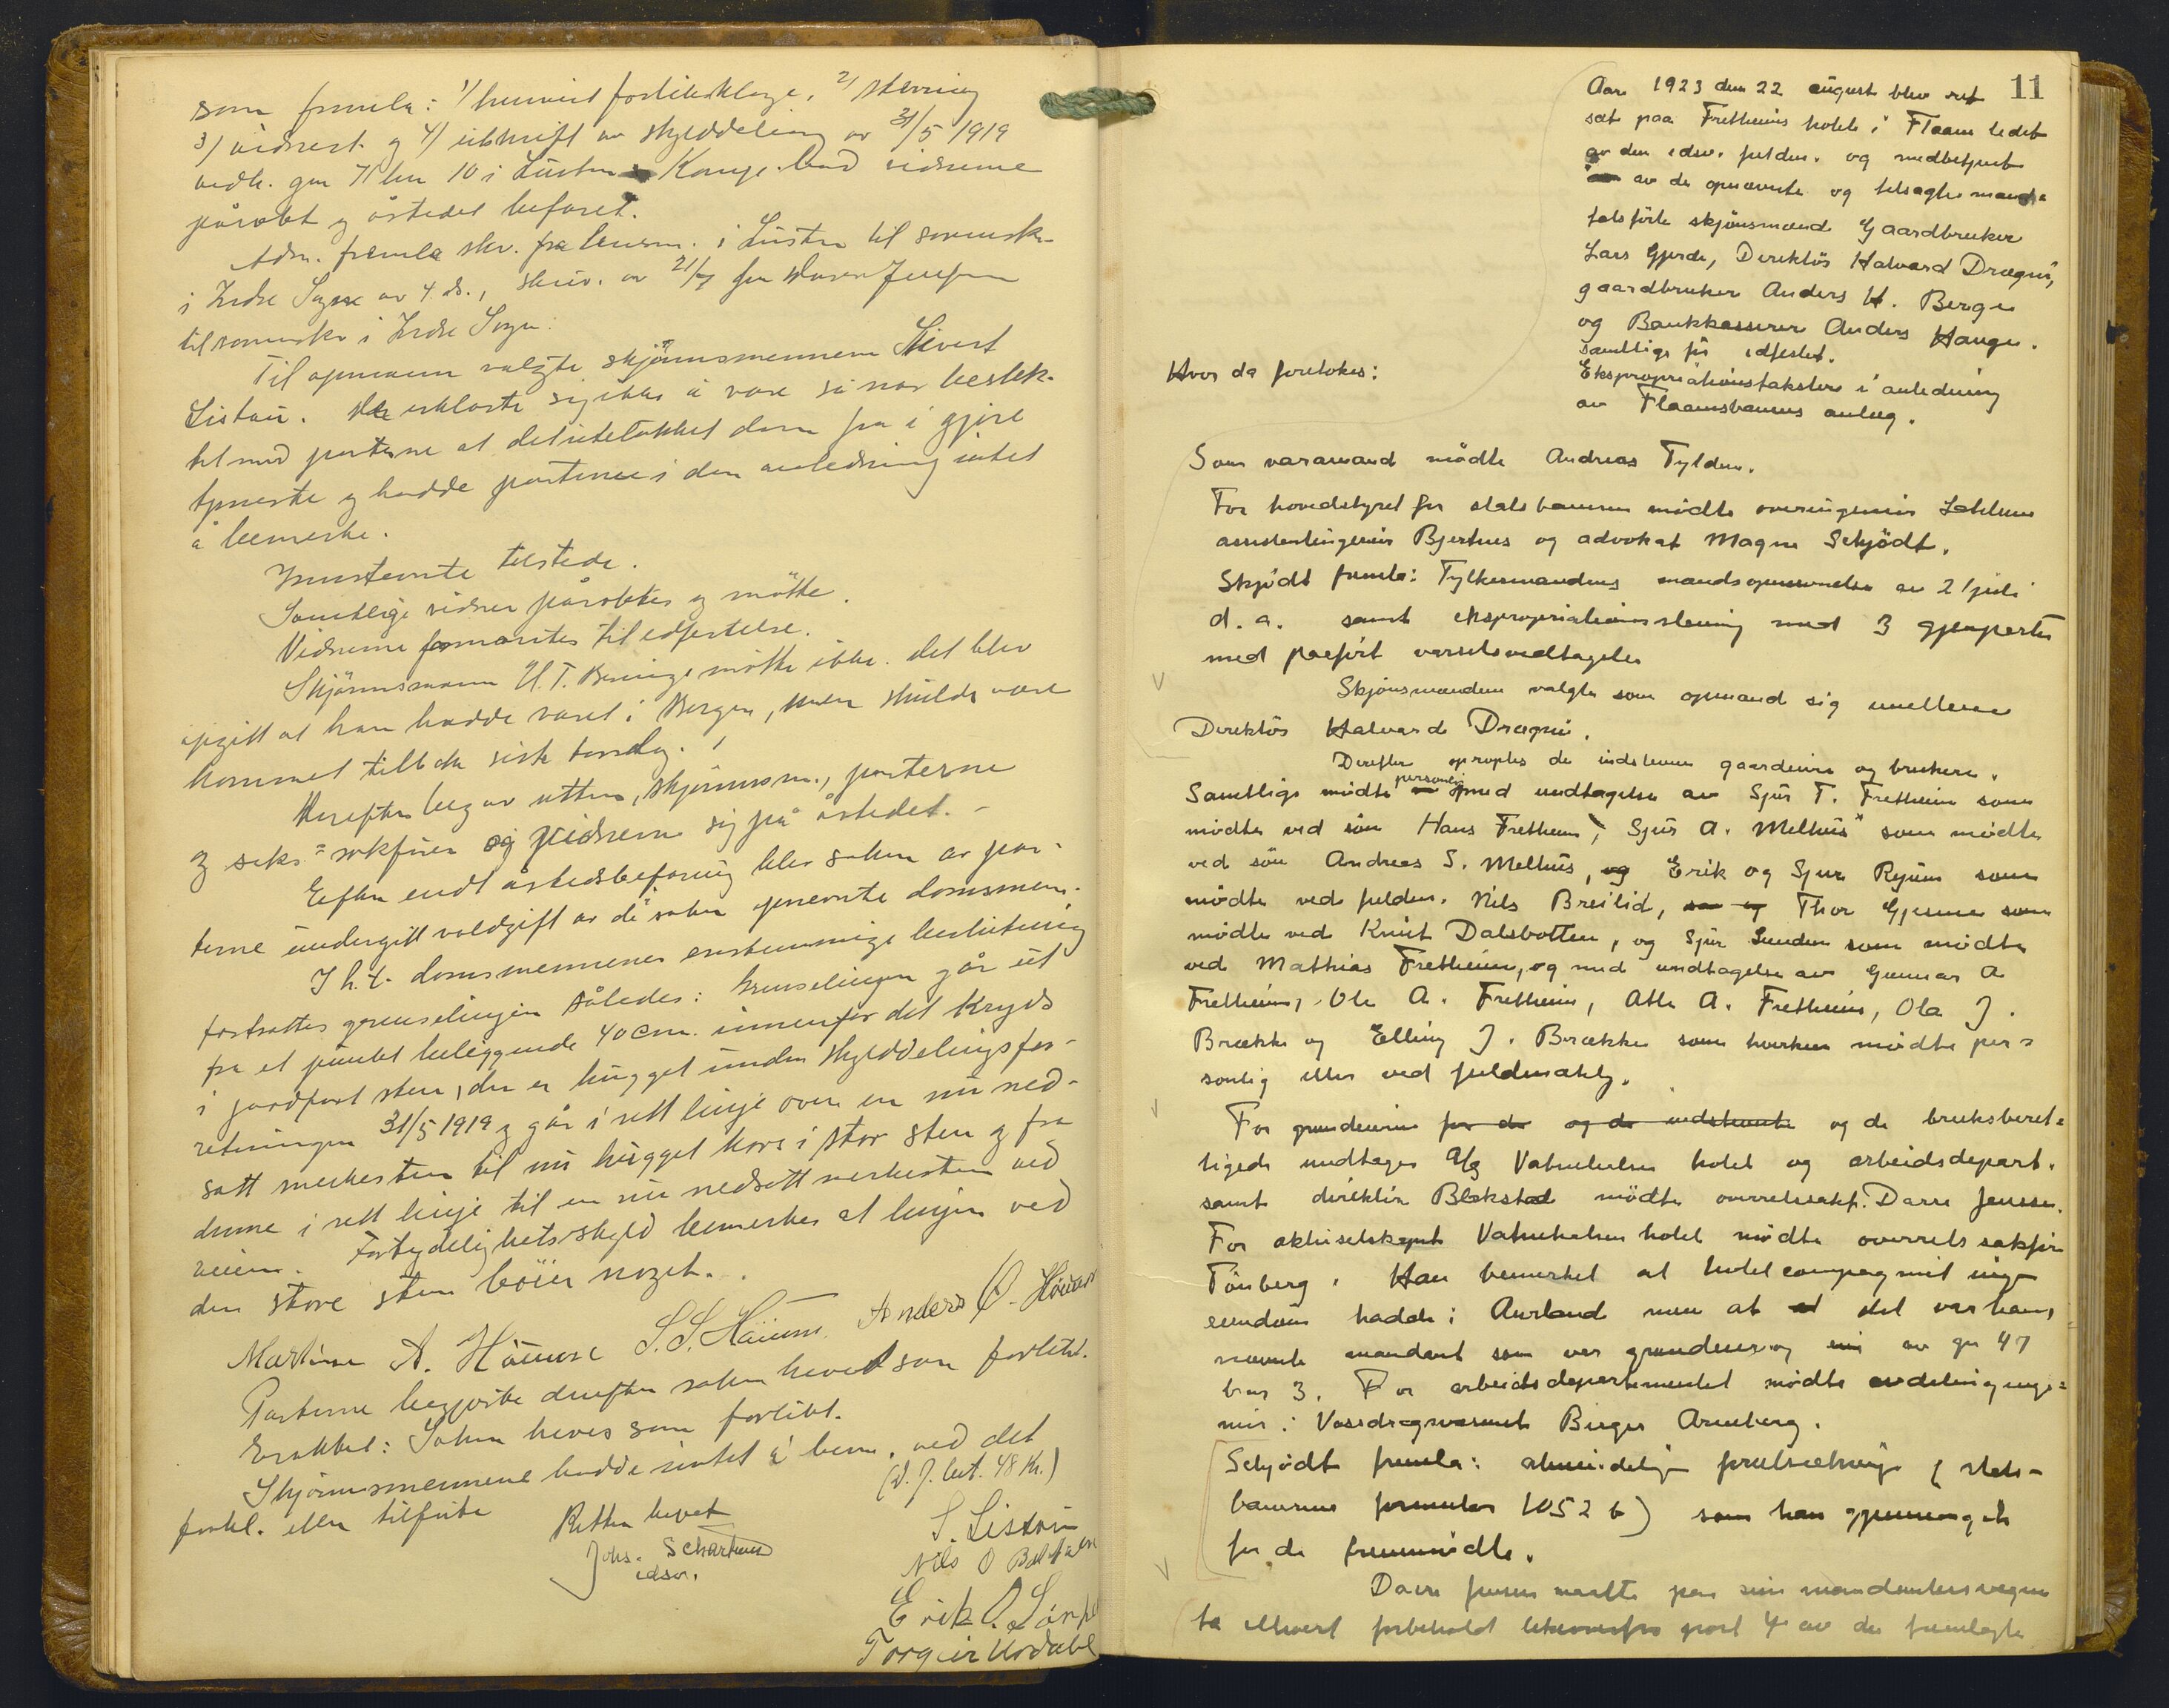 som fremla: 1/ henvist forliksklage, 2/ stevning
3/ vidnest. og 4/ utskrift av skylddeling av 31/5 1919
vedk. gnr 71 bnr 10 i Luster. Kamp. bad vidnerne
påropt og åstedet befaret.
Adm. fremla skr. fra lensm. i Luster til sorenskr.
i Indre Sogn av 4. ds., skriv. av 21/7 fra Darre Jenssen
til sorenskr. i Indre Sogn.
Til opmann valgte skjønnsmennene Sivert
Listau. De erklærte sig ikke å være så nær beslek-
tet med parterne at det utelukket dem fra å gjøre
tjeneste og hadde parterne i den anledning intet
å bemerke.
Innstevnte tilstede.
Samtlige vidner påroptes og møtte.
Vidnerne formantes til edfestelse.
Skjønnsmann H. T. møtte ikke. Det blev
opgitt at han hadde været i Bergen, men skulde være
kommet tilbake sist torsdag.
Derefter begav retten, skjønnsm., parterne
og saks- sakfører og vidnerne sig på åstedet. -
Efter endt åstedsbefaring blev saken av par-
terne undergitt voldgift av de i saken opnevnte domsmenn.
I h. t. domsmennenes enstemmige beslutning
fastsattes grenselinjen således: Grenselinjen går ut
fra et punkt beliggende 40 cm. innenfor det kryds
i jordfast sten, der er hugget under skylddelingsfor-
retningen 31/5 1919 og går i rett linje over en nu ned-
satt merkesten til nu hugget kors i stor sten og fra
denne i rett linje til en nu nedsatt merkesten ved
veien. For tydelighets skyld bemerkes at linjen ved
den store sten bøier noget.
Martinus A. Håuuse S. S. Håuum. Anders O.
Parterne begjærte derefter saken hevet som forlikt.
Erakktet: Saken heves som forlikt.
Skjønnsmennene hadde intet å bem. ved det
forkl. eller tilførte (D. J. bet. 48 Kr.)
Retten hevet
Johs. Schartum
edsv.
S. Listau
Nils O
Erik O.
Torgeir Urdahl
11
Aar 1923 den 22 august blev ret
sat paa Fretheims hotel i Flaam ledet
av den edsv. fuldm. og medbetjent
av de opnævnte og tilsagte mand-
talsførte skjønsmænd Gaardbruker
Lars Gjerde, Direktør Halvard Drægni,
gaardbruker Anders H. Berge
og Bankkasserer Anders Hauge.
samtlige før edfestet.
Hvor da foretokes:
Ekspropriationstakster i anledning
av Flaamsbanens anlæg.
Som varamand mødte Andreas Tylden.
For hovedstyret for statsbanerne mødte overingeniør
assistentingeniør Bjerknes og advokat Magne Schjödt.
Skjödt fremla: Fylkesmandens mandsopnevnelse av 21 juli
d. a. samt ekspropriationsstevning med 3 gjenparter
med paaført varselsvedtagelse
Skjønsmændene valgte som opmand sig imellem
Direktör Halvard Drægni.
Derefter opropes de indstevnte gaardeiere og brukere.
Samtlige mødte personlig med undtagelse av Sjur T. Fretheim som
mødte ved søn Hans Fretheim, Sjur A. Melhus som mødte
ved søn Andreas S. Melhus, og Erik og Sjur Ryum som
mødte ved fuldm. Nils Breilid, Thor Gjerme som
mødte ved Knut Dalsbotten, og Sjur Lunden som mødte
ved Mathias Fretheim, og med undtagelse av Gunnar A
Fretheim, Ole A. Fretheim, Atle A. Fretheim, Ola J.
Brække og Elling J. Brække som hverken mødte per-
sonlig eller ved fuldmægtig.
For grundeierne for de og de indstevnte og de bruksberet-
tigede undtagen A/S Vatnahalsen hotel og arbeidsdepart.
samt direktör Blakstad mødte overretssakf. Darre Jenssen.
For aktieselskapet Vatnahalsen hotel mødte overrets sakfør
Tönberg. Han bemerket at hotelcompagniet ingen
eiendom hadde i Aurland men at det var hans
nævnte mandant som var grundeier av gnr 47
bnr 3. For arbeidsdepartementet mødte avdelingsinge-
niør i Vassdragsvæsenet Birger Arneberg.
Schjödt fremla: almindelige forutsætninger (stats-
banernes formular 1052 b) som han gjennemgik
for de fremmødte.
Darre Jenssen maatte paa sine mandanters vegne
ta ethvert forbehold likeoverfor post 4 av de fremlagte